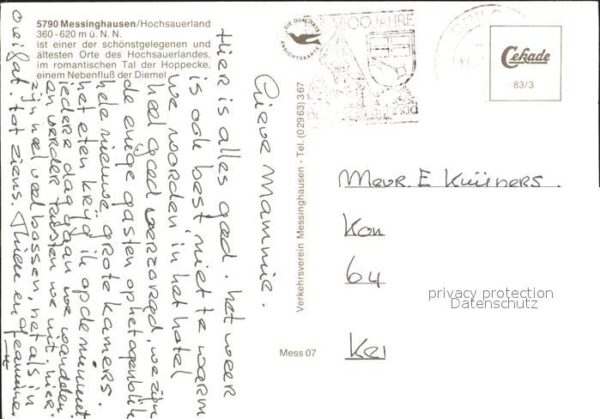 5790 Messinghausen/Hochsauerland
360-620 m ü. N. N.
ist einer der schönstgelegenen und
ältesten Orte des Hochsauerlandes,
im romantischen Tal der Hoppecke,
einem Nebenfluß der Diemel
Lieve Mammie.
Hier is alles goed. het weer
is ook best, niet te warm
we worden in het hotel
heel goed verzorgd, we zijn
de enige gasten op het ogenblik
hele nieuwe, grote kamers.
het eten krijg ik op de minuut
iedere dag gaan we wandelen
en verder rusten we uit. hier
zijn heel veel bossen, net als in
tot ziens. Thieu en
Verkehrsverein Messinghausen - Tel. (02963) 367
Mess 07
DIE QUALITÄTS
ANSICHTSKARTE
JAHRE
Cekade
83/3
Mevr. E Kuijners.
Kon
64
Kei
privacy protection
Datenschutz